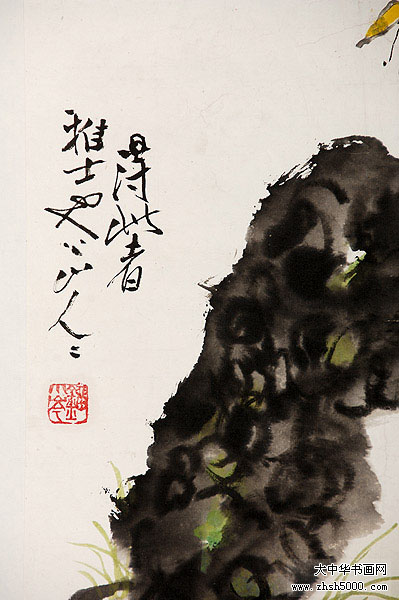 得此者
雅士也山人
大中华书画网
www.zhsh5000.com